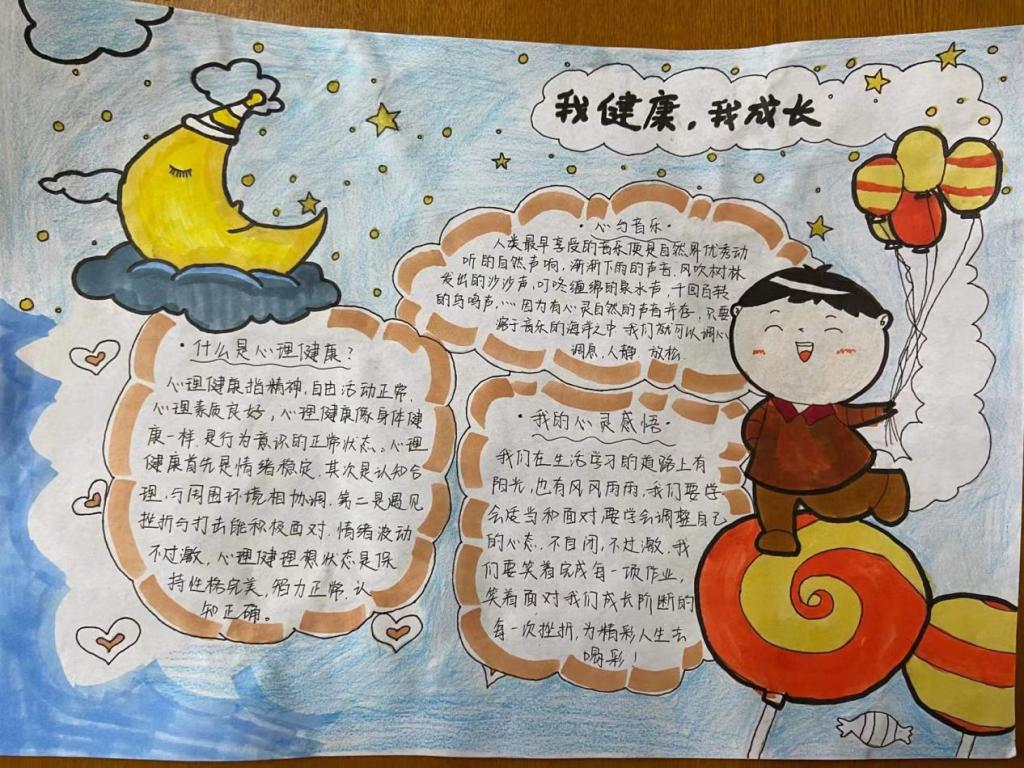 我健康，我成长
·心与音乐·
人类最早享受的音乐便是自然界优秀动
听的自然声响，淅淅下雨的声音，风吹树林
发出的沙沙声，叮咚缠绵的泉水声，千回百转
的鸟鸣声……因为有心灵自然的声音并存，只要
溶于音乐的海洋之中 我们就可以调心
调息，人静，放松．
·什么是心理健康？
心理健康指精神，自由活动正常．
心理素质良好，心理健康像身体健
康一样，是行为意识的正常状态。心理
健康首先是情绪稳定，其次是认知合
理，与周围环境相协调．第二是遇见
挫折与打击能积极面对．情绪波动
不过激．心理健理想状态是保
持性格完美，智力正常．认
知正确。
·我的心灵感悟·
我们在生活学习的道路上有
阳光，也有风风雨雨．我们要学
会适当和面对，要学会调整自己
的心态．不自闭，不过激．我
们要笑着完成每一项作业，
笑着面对我们成长阶断的
每一次挫折，为精彩人生去
喝彩！